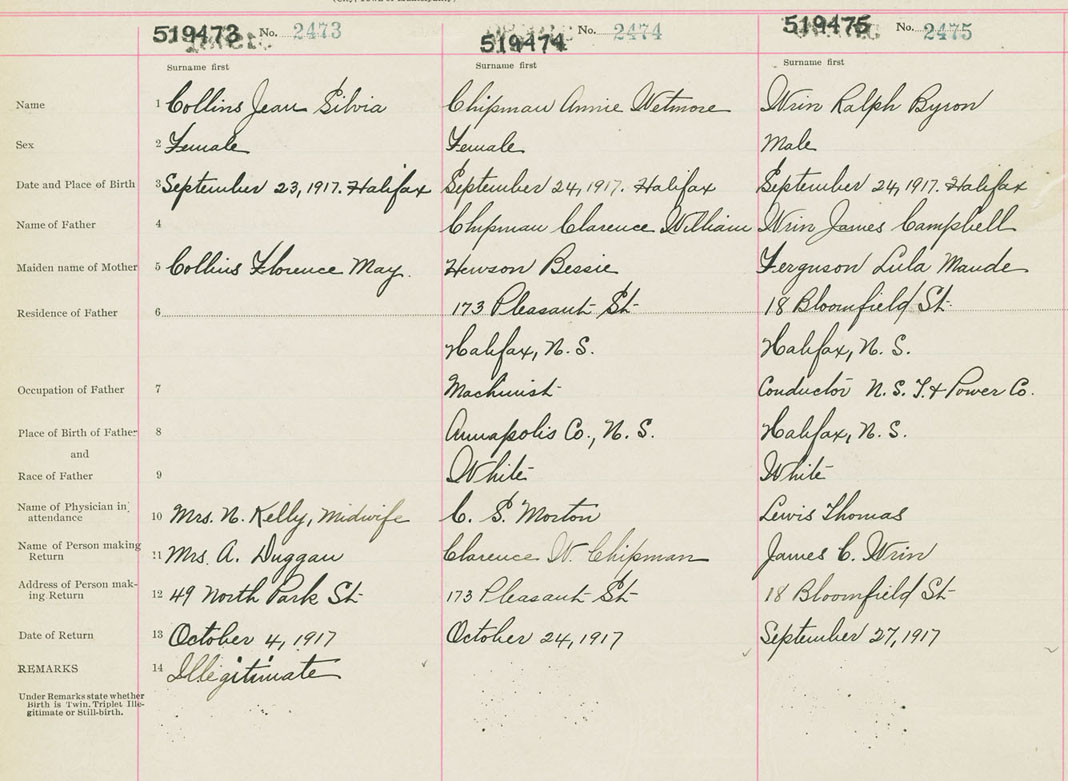 519473 No. 2473
Surname first
519474 No. 2474
Surname first
519475 No. 2475
Surname first
Name 1 Collins Jean Silvia Chipman Annie Wetmore Wrin Ralph Byron
Sex 2 Female Female Male
Date and Place of Birth 3 September 23, 1917. Halifax September 24, 1917. Halifax September 24, 1917. Halifax
Name of Father 4 Chipman Clarence William Wrin James Campbell
Maiden name of Mother 5 Collins Florence May. Hewson Bessie Ferguson Lula Maude
Residence of Father 6 173 Pleasant St. 18 Bloomfield St.
Halifax, N.S. Halifax, N.S.
Occupation of Father 7 Machinist Conductor N.S.T. & Power Co.
Place of Birth of Father 8 Annapolis Co., N.S. Halifax, N.S.
and
Race of Father 9 White White
Name of Physician in
attendance 10 Mrs. N. Kelly, Midwife C. S. Morton Lewis Thomas
Name of Person making
Return 11 Mrs. A. Duggan Clarence W. Chipman James C. Wrin
Address of Person mak-
ing Return 12 49 North Park St. 173 Pleasant St. 18 Bloomfield St.
Date of Return 13 October 4, 1917 October 24, 1917 September 27, 1917
REMARKS 14 Illegitimate
Under Remarks state whether
Birth is Twin. Triplet Ille-
gitimate or Still-birth.